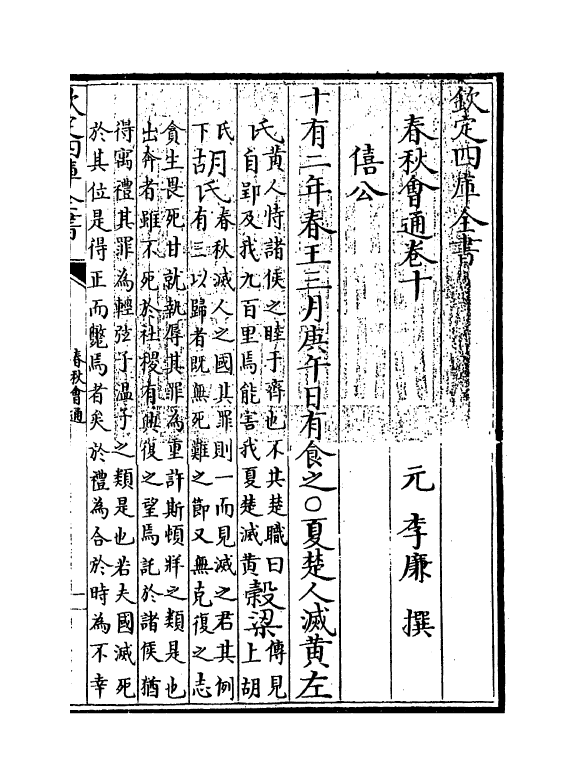 欽定四庫全書
春秋會通卷十
元 李廉 撰
僖公
十有二年春王三月庚午日有食之○夏楚人滅黃左
氏黃人恃諸侯之睦于齊也不共楚職曰
自郢及我九百里焉能害我夏楚滅黃穀梁傳見
上胡
氏胡氏春秋滅人之國其罪則一而見滅之君其例
下古有三以歸者既無死難之節又無克復之志
貪生畏死甘就執辱其罪為重許斯頓牂之類是也
出奔者雖不死於社稷有興復之望焉託於諸侯猶
得寓禮其罪為輕弦子溫子之類是也若夫國滅死
於其位是得正而斃焉者矣於禮為合於時為不幸
欽定四庫全書
春秋會通